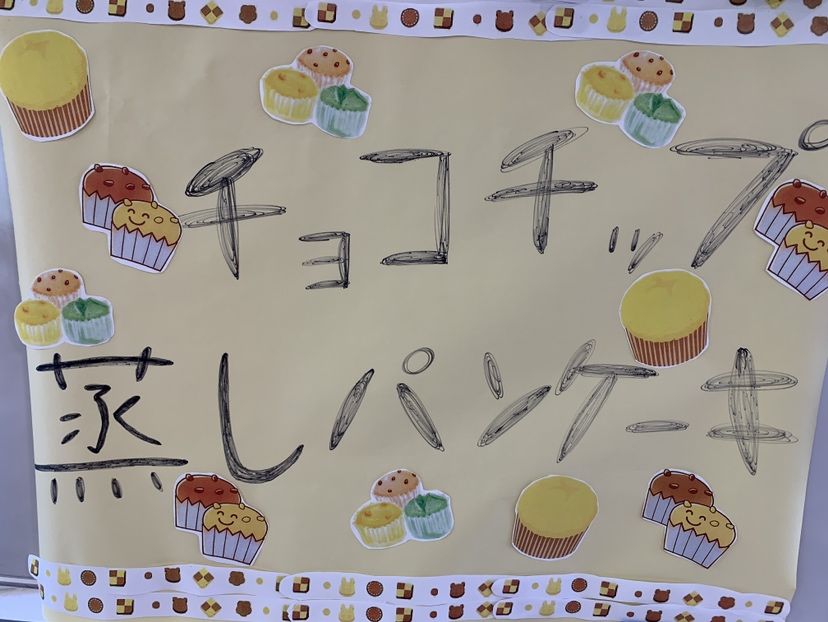 チョコチップ
蒸しパンケーキ